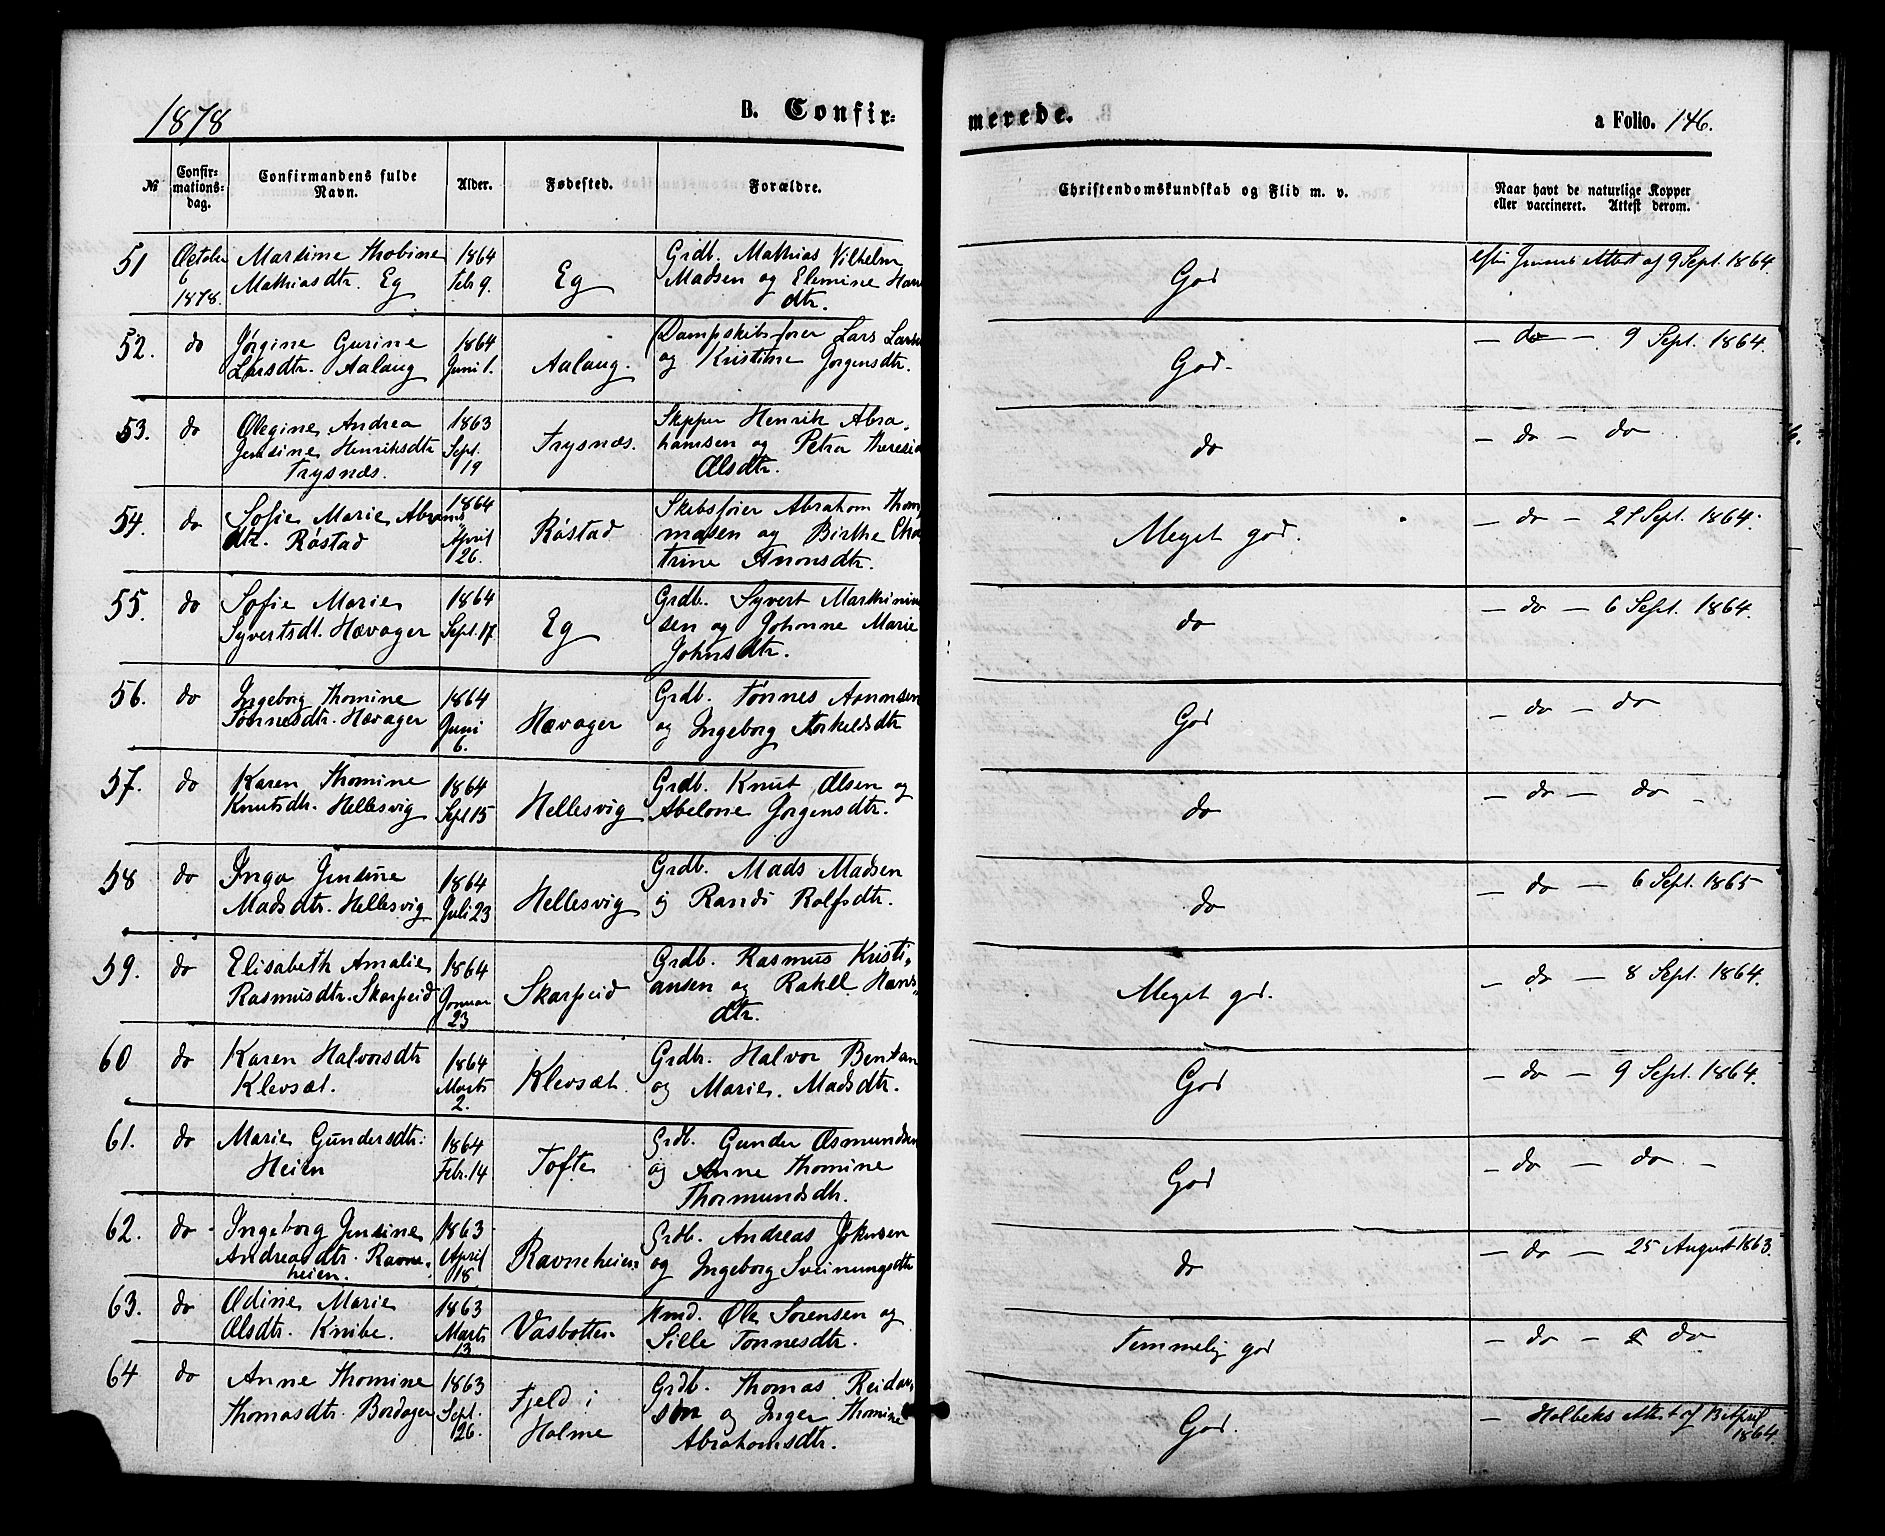 1878
B. Confir-
merede.
a Folio. 146.
№
Confir-
mations-
dag.
Confirmandens fulde
Navn.
Alder.
Fødested.
Forældre.
Christendomskundskab og Flid m. v.
Naar havt de naturlige Kopper
eller vaccineret. Attest derom.
51 October Thobine 1864 Grdb. Mathias Vilhelm
6 Mathiasdtr. Eg Febr 9. Eg Madsen og Elemine Hans
1878. dtr. God Attest af 9 Sept. 1864.
52. do Jørgine Gurine 1864 Dampskibsfører Lars Larsen
Larsdtr. Aalaug Juni 1. Aalaug. og Kristine Jørgensdtr. God. – do – 9 Sept. 1864.
53. do Olegine Andrea 1863 Skipper Henrik Abra-
Jensine Henriksdtr Sept. Trysnæs. hamsen og Petra Theresia
Trysnæs. 19 Olsdtr. do – do – do
54. do Sofie Marie 1864 Skibsfører Abraham Thom
dtr. Røstad April Røstad masen og Birthe
26. trine Aronsdtr. Meget god. – do – Sept. 1864.
55. do Sofie Marie 1864 Grdb. Syvert
Syvertsdt. Hævager Sept. 17. Eg sen og Johanne Marie
Johnsdtr. do – do – 6 Sept. 1864.
56. do Ingeborg Thomine 1864 Grdb. Tønnes Aronsen
Tønnesdtr. Hævager Juni Hævager og Ingeborg
6. God – do – do
57. do Karen Thomine 1864 Grdb. Knut Olsen og
Knutsdtr. Hellesvig Sept 15 Hellesvig Abelone Jørgensdtr. do – do – do –
58 do Inga Jensine 1864 Grdb. Mads Madsen
Madsdtr. Hellesvig Juli 23 Hellesvig og Randi Rolfsdtr. do – do – 6 Sept. 1865
59. do Elisabeth Amalie 1864 Grdb. Rasmus Kristi-
Rasmusdtr. Skarpeid Januar Skarpeid ansen og Rakel Hans-
23 dtr. Meget god. – do – 8 Sept. 1864.
60 do Karen Halvorsdtr 1864 Grdbr. Halvor
Klevsæt. Marts Klevsæt. og Marie Madsdtr.
2. God – do – 9 Sept. 1864.
61. do Marie Gundersdtr. 1864 Grdb. Gunder Osmundsen
Heien Febr. 14 Tofte og Anne Thomine
Thormundsdtr. God – do – do –
62. do Ingeborg Jensine 1863 Grdb. Andreas
Andreasdtr. Ravne- April Ravneheien og Ingeborg Sveinungsdtr
heien. 18. do – do – 25 August 1863.
63. do Odine Marie 1863 Hmd. Ole Sørensen og
Olsdtr. Knibe. Marts Vasbotten Sille Tønnesdtr.
13 Temmelig god – do – do
64 do Anne Thomine 1863 Fjeld i Grdb. Thomas Reidar-
Thomasdtr. Bordager Sept. Holme sen og Inger Thomine
26. Abrahamsdtr. God. – Holbeks Attest af April
1864.